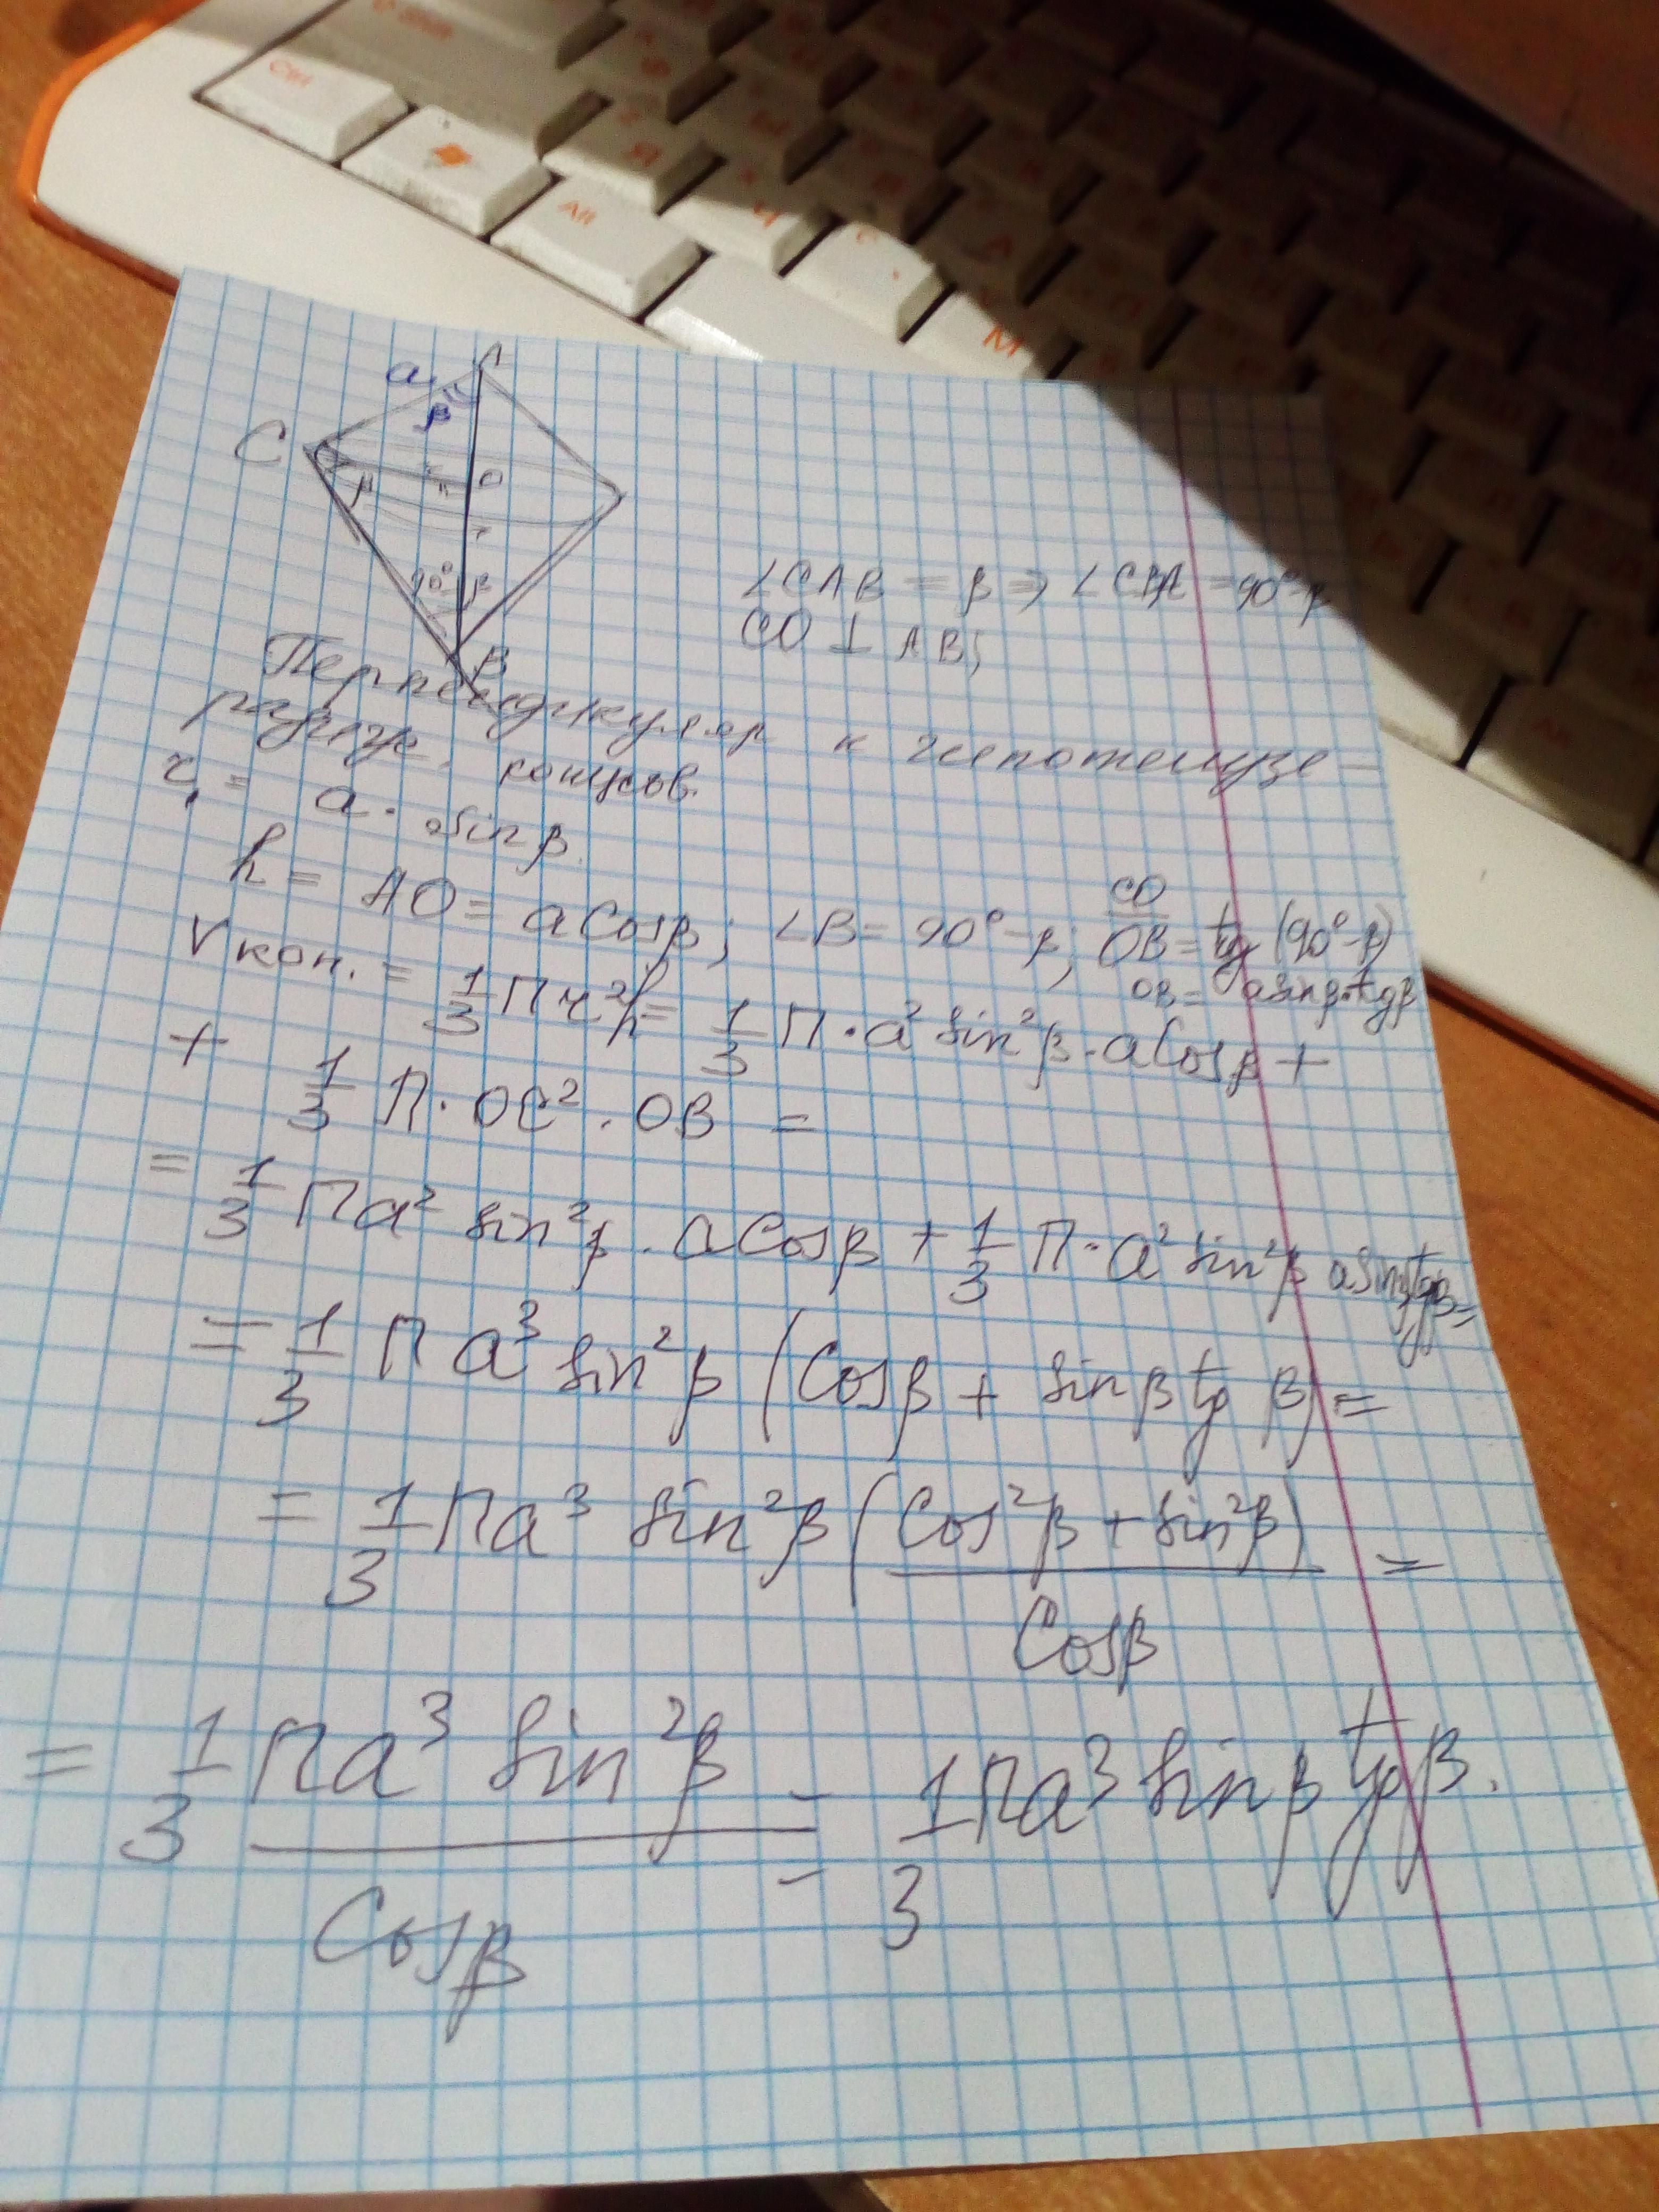 Ctrl
Alt
Я
Ч
С
М
A
a
β
C
O
β
90°-β
B
∠CAB = β ⇒ ∠CBA = 90°-β
CO ⊥ AB;
Перпендикуляр к гипотенузе –
радиус конусов.
r₁ = a · sin β.
h = AO = a cos β; ∠B = 90°-β; CO/OB = tg (90°-β)
OB = a sin β·tg β
Vкон. = 1/3 П r² h = 1/3 П · a² sin² β · a cos β +
+ 1/3 П · OC² · OB =
= 1/3 П a² sin² β · a cos β + 1/3 П · a² sin² β a sin β tg β =
= 1/3 П a³ sin² β (cos β + sin β tg β) =
= 1/3 П a³ sin² β (cos² β + sin² β)/cos β =
= 1/3 П a³ sin² β/cos β = 1/3 П a³ sin β tg β.